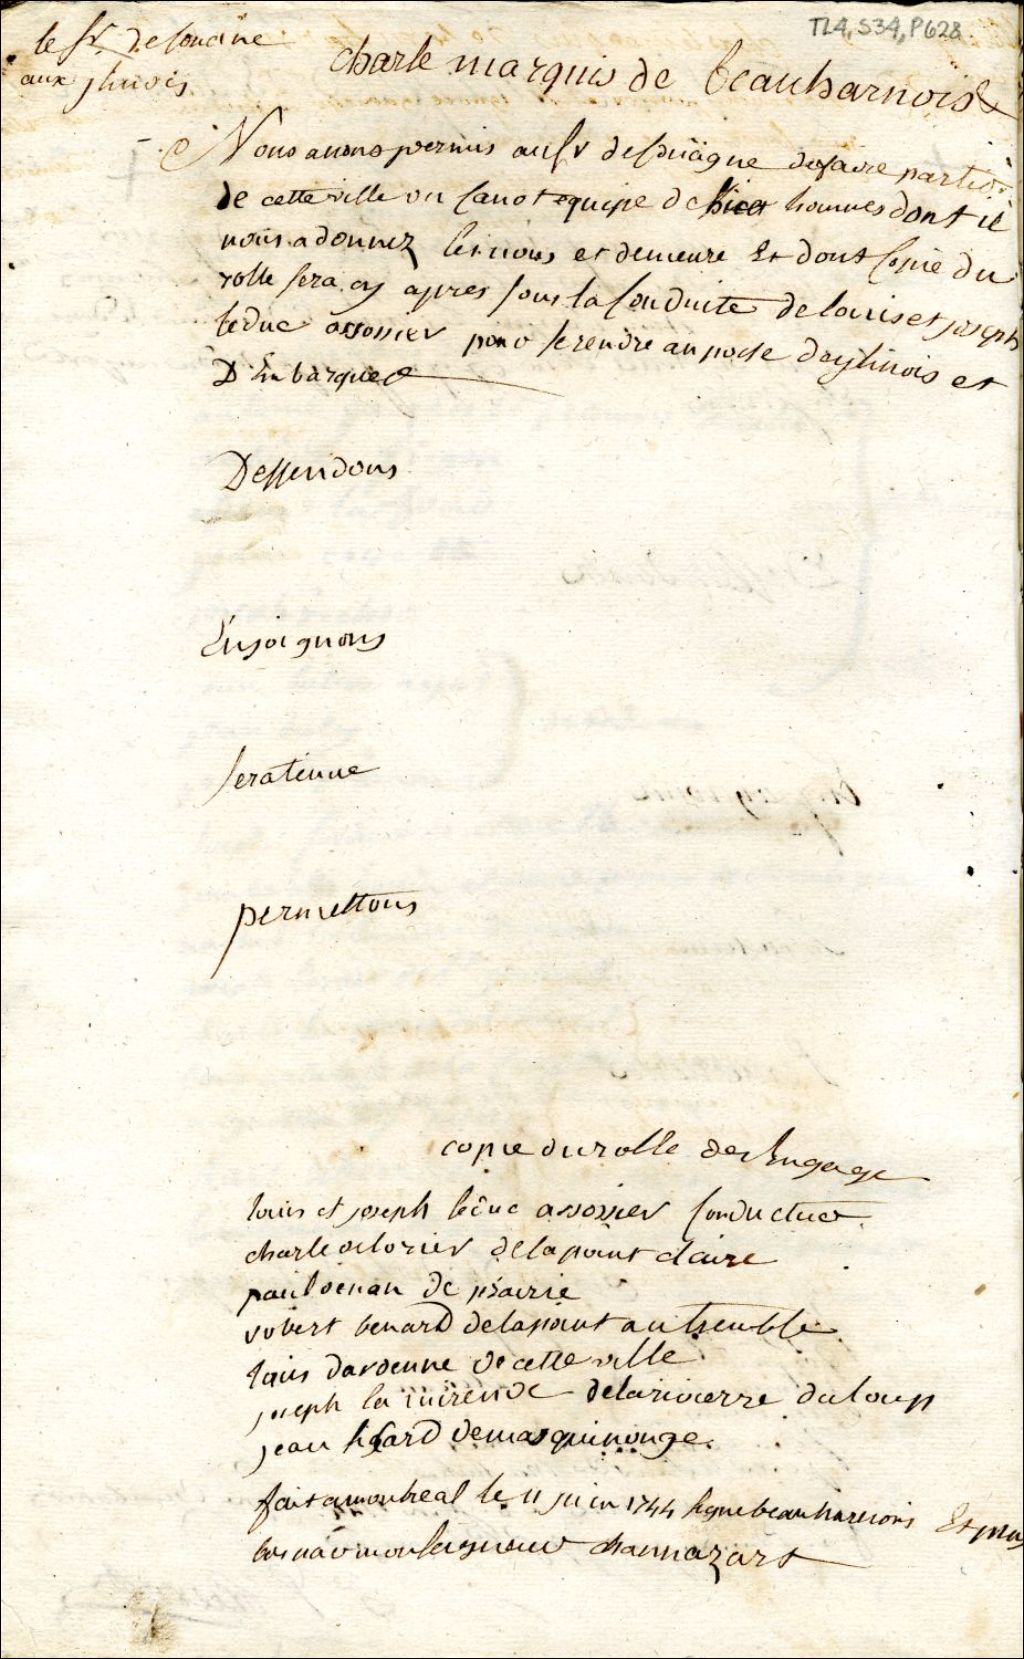 TL4, S34, P628
le Sr. de
aux ylinois
charle marquis de beauharnois &
Nous avons permis au Sr de faire partir
de cette ville un Canot equipé de hommes dont il
nous a donnez les noms et demeure Et dont Copie du
rolle sera cy apres sous la Conduitte de louis et joseph
leduc assossier pour se rendre au poste des ylinois et
D'Embarquer
Deffendons
Enjoignons
sera tenue
permettons
copie du rolle des Engage
louis et joseph leduc assossier Conducteur
charle de la point claire
paul de prairie
robert benard de la point au tremble
louis dardenne de cette ville
joseph la de la rivierre du loup
jean de masquinonge
fait a montreal le 11 juin 1744 signe beauharnois Et plus
bas par monseigneur